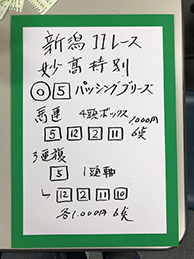 新潟11レース
妙高特別
◎ 5 パッシングブリーズ
馬連 4頭ボックス 1000円
5 12 2 11 6点
3連複
5 1頭軸
↳ 12 2 11 10
各1.000円 6点